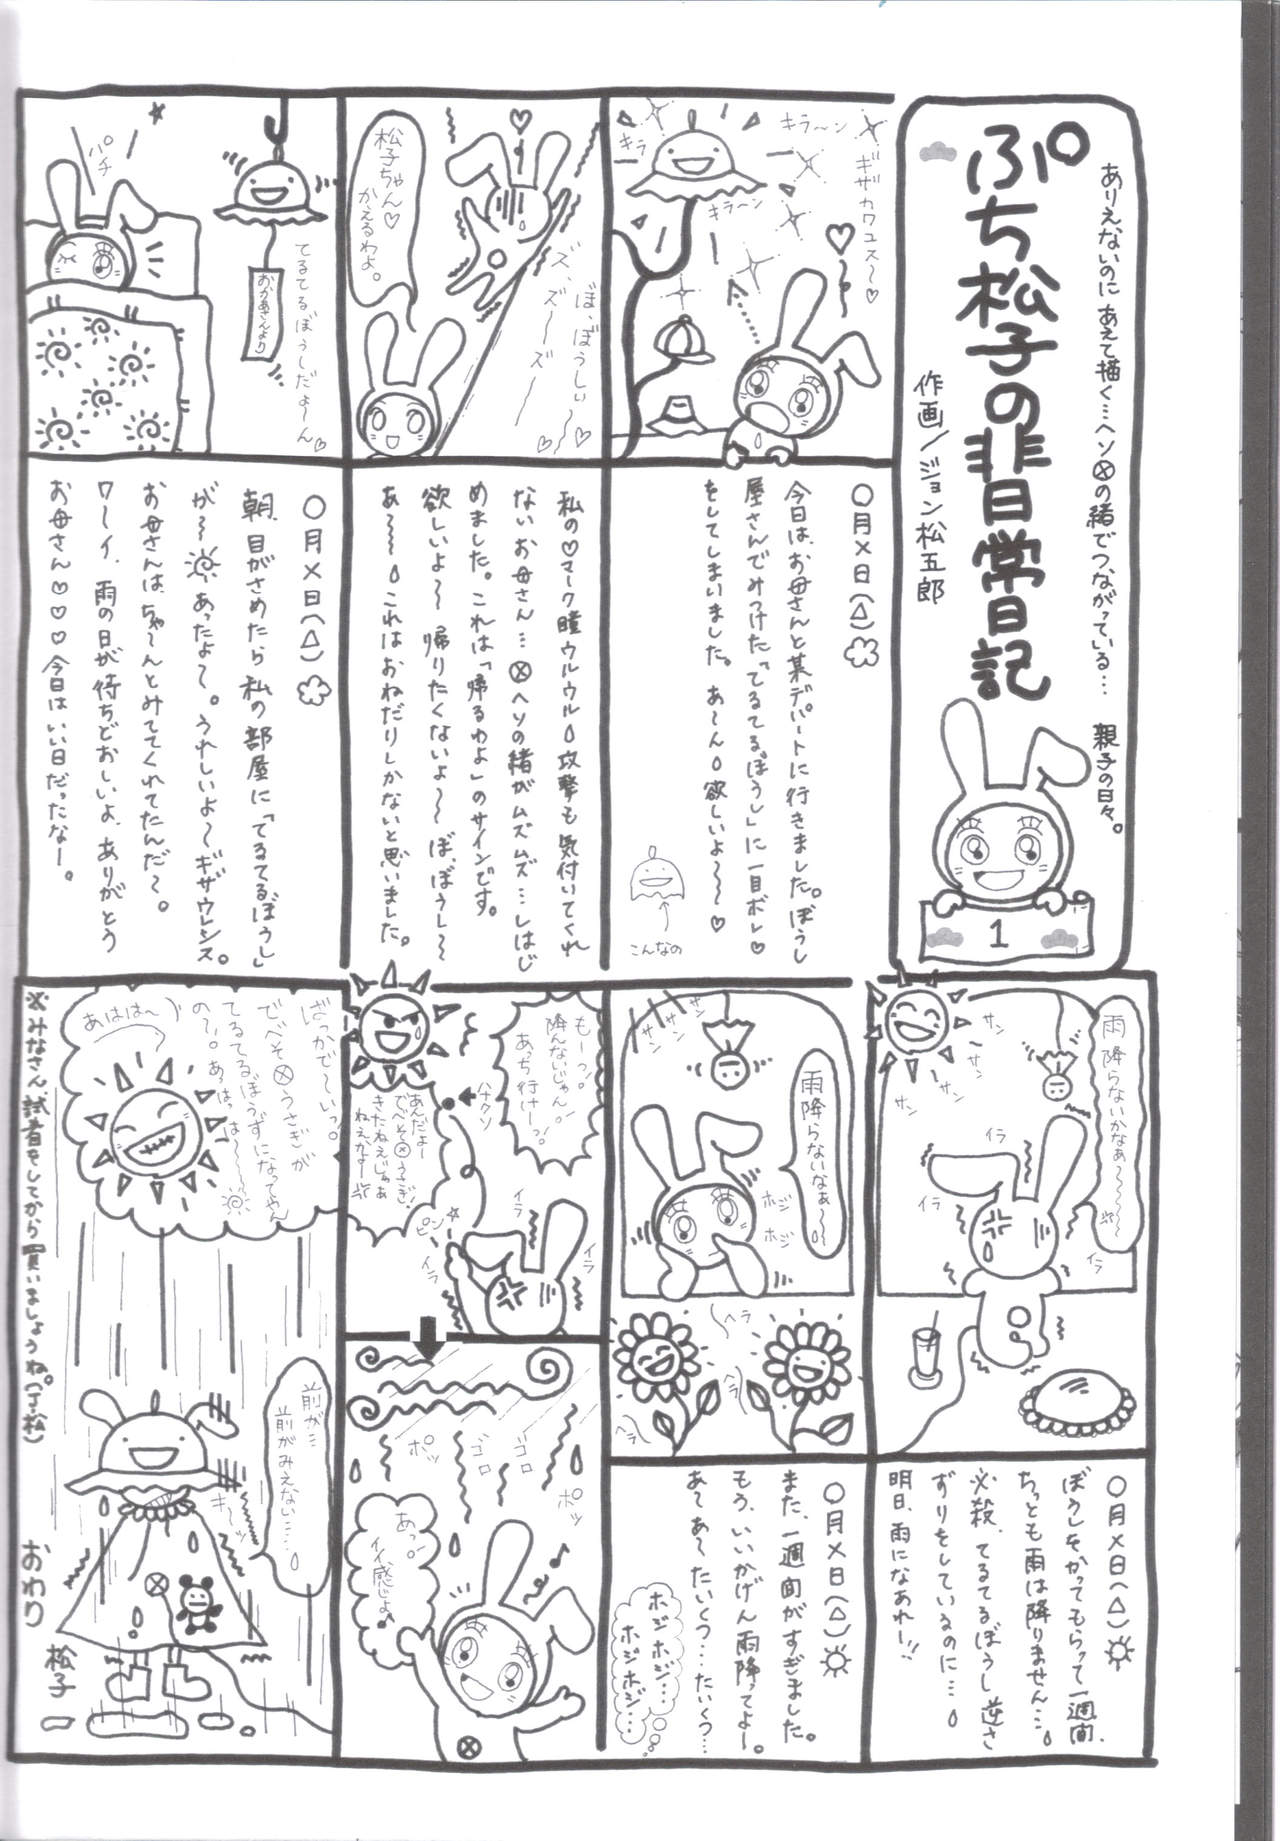 ありえないのに あえて描く…ヘソ⊗の緒でつながっている… 親子の日々。
ぷち松子の非日常日記
作画／ジョン松五郎
1
キラ〜ン
キラ
キラ〜ン
ギザカワユス〜♡
○月×日(△)
今日は、お母さんと某デパートに行きました。ぼうし
屋さんでみつけた「てるてるぼうし」に一目ボレ♡
をしてしまいました。あ〜ん欲しいよ〜〜♡
こんなの
ズ、ズ〜〜ズ〜〜♡
ぼ、ぼうしぃ〜♡
松子ちゃん♡
かえるわよ。
私の♡マーク瞳ウルウル攻撃も気付いてくれ
ないお母さん…⊗ヘソの緒がムズムズ…しはじ
めました。これは「帰るわよ」のサインです。
欲しいよ〜〜帰りたくないよ〜〜ぼ、ぼうし〜〜
あ〜〜これはおねだりしかないと思いました。
パチ
おかあさんより
てるてるぼうしだよ〜ん♡
○月×日(△)
朝、目がさめたら私の部屋に「てるてるぼうし」
が〜あったよ〜。うれしいよ〜ギザウレシス。
お母さんは、ちゃ〜んとみててくれてたんだ〜。
ワ〜イ、雨の日が待ちどおしいよ、ありがとう
お母さん♡♡♡今日はいい日だったなー。
雨降らないかなぁ〜〜〜
サン
サン
サン
イラ
イラ
○月×日(△)
ぼうしをかってもらって一週間、
ちっとも雨は降りません…
必殺、てるてるぼうし逆さ
ずりをしているのに…
明日、雨になあれ!!
雨降らないなぁ〜〜
サン
サン
サン
ホジ
ホジ
ヘラ
ヘラ
ヘラ
○月×日(△)
また、一週間がすぎました。
もう、いいかげん雨降ってよー。
あ〜あ〜たいくつ…たいくつ…
ホジホジ…
ホジホジ…
もーっ!。
降んないじゃん!
あっち行けーっ!
ハナクソ
あんだよー
でべそ⊗うさぎ!
きたねえじゃぁ
ねぇかよー
ピン
イラ
イラ
イラ
ポッ
ゴロ
ゴロ
ポッ
あっ!
イイ感じよ♪
ばっかで〜いっ!。
でべそ⊗うさぎが
てるてるぼうずになってやん
の〜!。あっはっは〜〜
あはは〜
前が…
前がみえない……
キ〜ッ
松子
おわり
※みなさん、試着をしてから買いましょうね。(J・松)